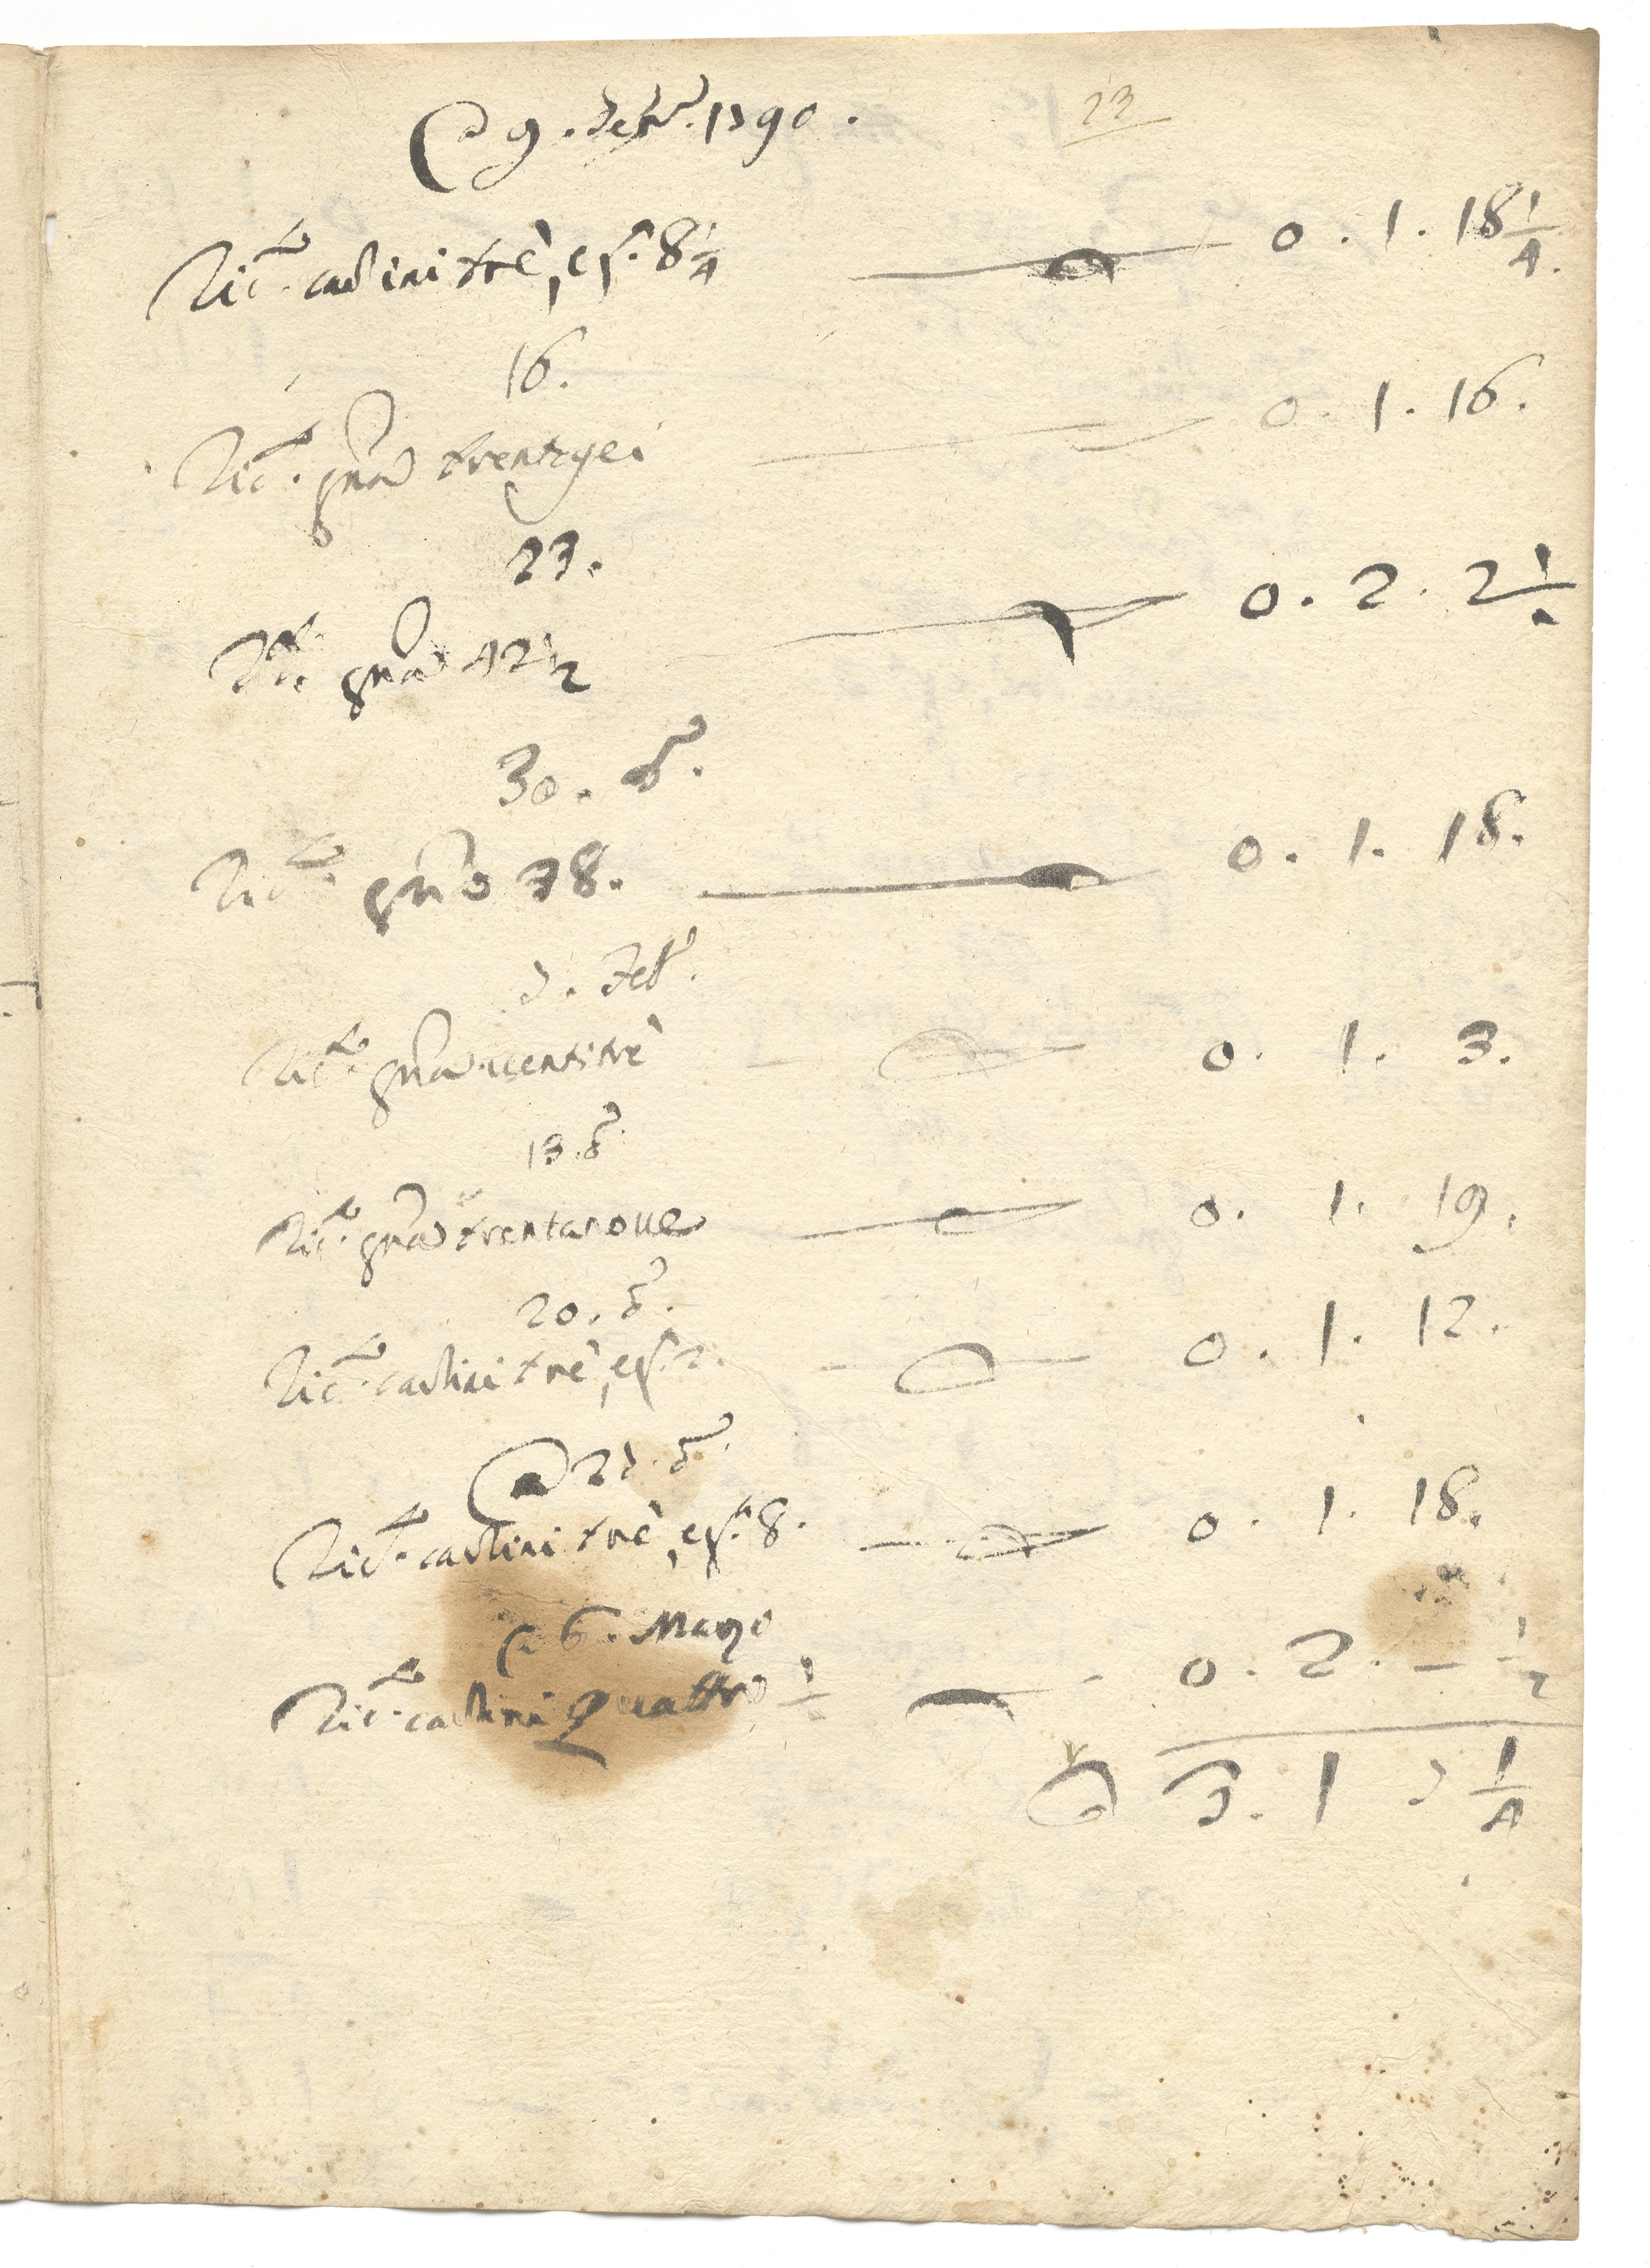 A 9. Genro. 1590.
23
Ric.to carlini trè, e g.na 8 1/4 0. 1. 18 1/4.
16.
Ric.to grana trentasei 0. 1. 16.
23.
Ric.to grana 42 1/2 0. 2. 2 1/2
30. d.o
Ric.to grana 38. 0. 1. 18.
5. Feb.o
Ric.to grana uentitrè 0. 1. 3.
13. d.o
Ric.to grana trentanoue 0. 1. 19.
20. d.o
Ric.to carlini trè, e g.na 2. 0. 1. 12.
A 25. d.o
Ric.to carlini trè, e g.na 8. 0. 1. 18.
A 6. Marzo
Ric.to carlini quattro 1/2 0. 2. - 1/2
3. 1 5 1/4